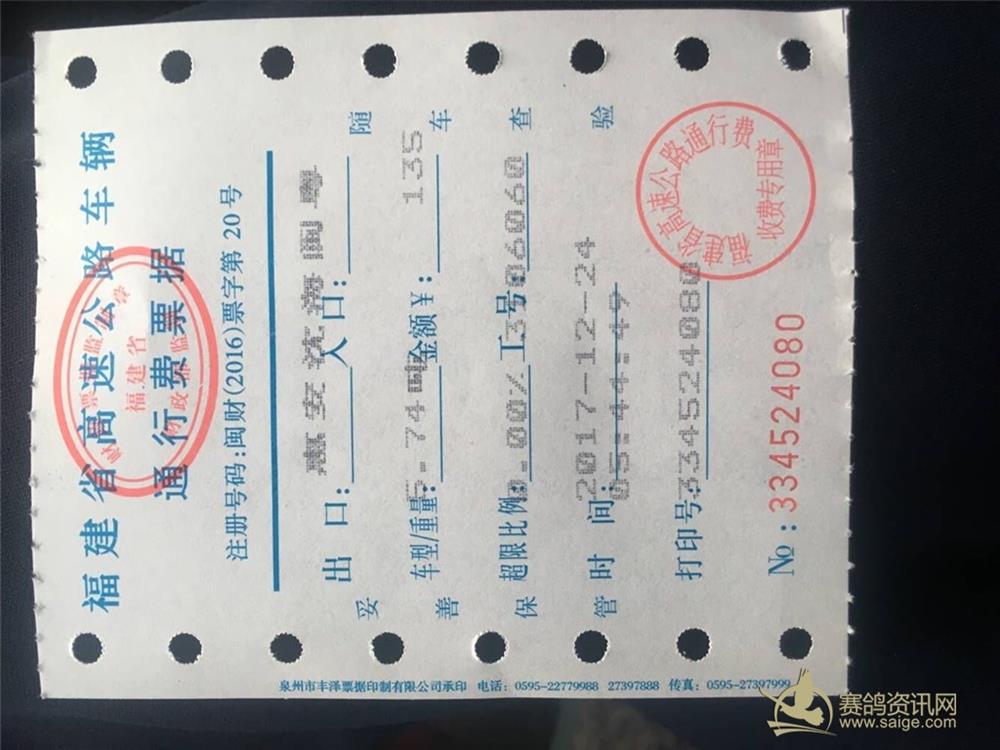 福建省高速公路车辆
通行费票据
福建省
注册号码:闽财(2016)票字第20号
出口: 惠安 入口: 沈海闽粤
车型/重量: 5.74吨 金额¥: 135
超限比例: 0.00% 工号: 3506060
时间: 2017-12-24
05:44:49
打印号: 334524080
妥善保管
随车查验
№:334524080
福建省高速公路通行费
收费专用章
泉州市丰泽票据印制有限公司承印 电话: 0595-22779988 27397888 传真: 0595-27397999
赛鸽资讯网
www.saige.com